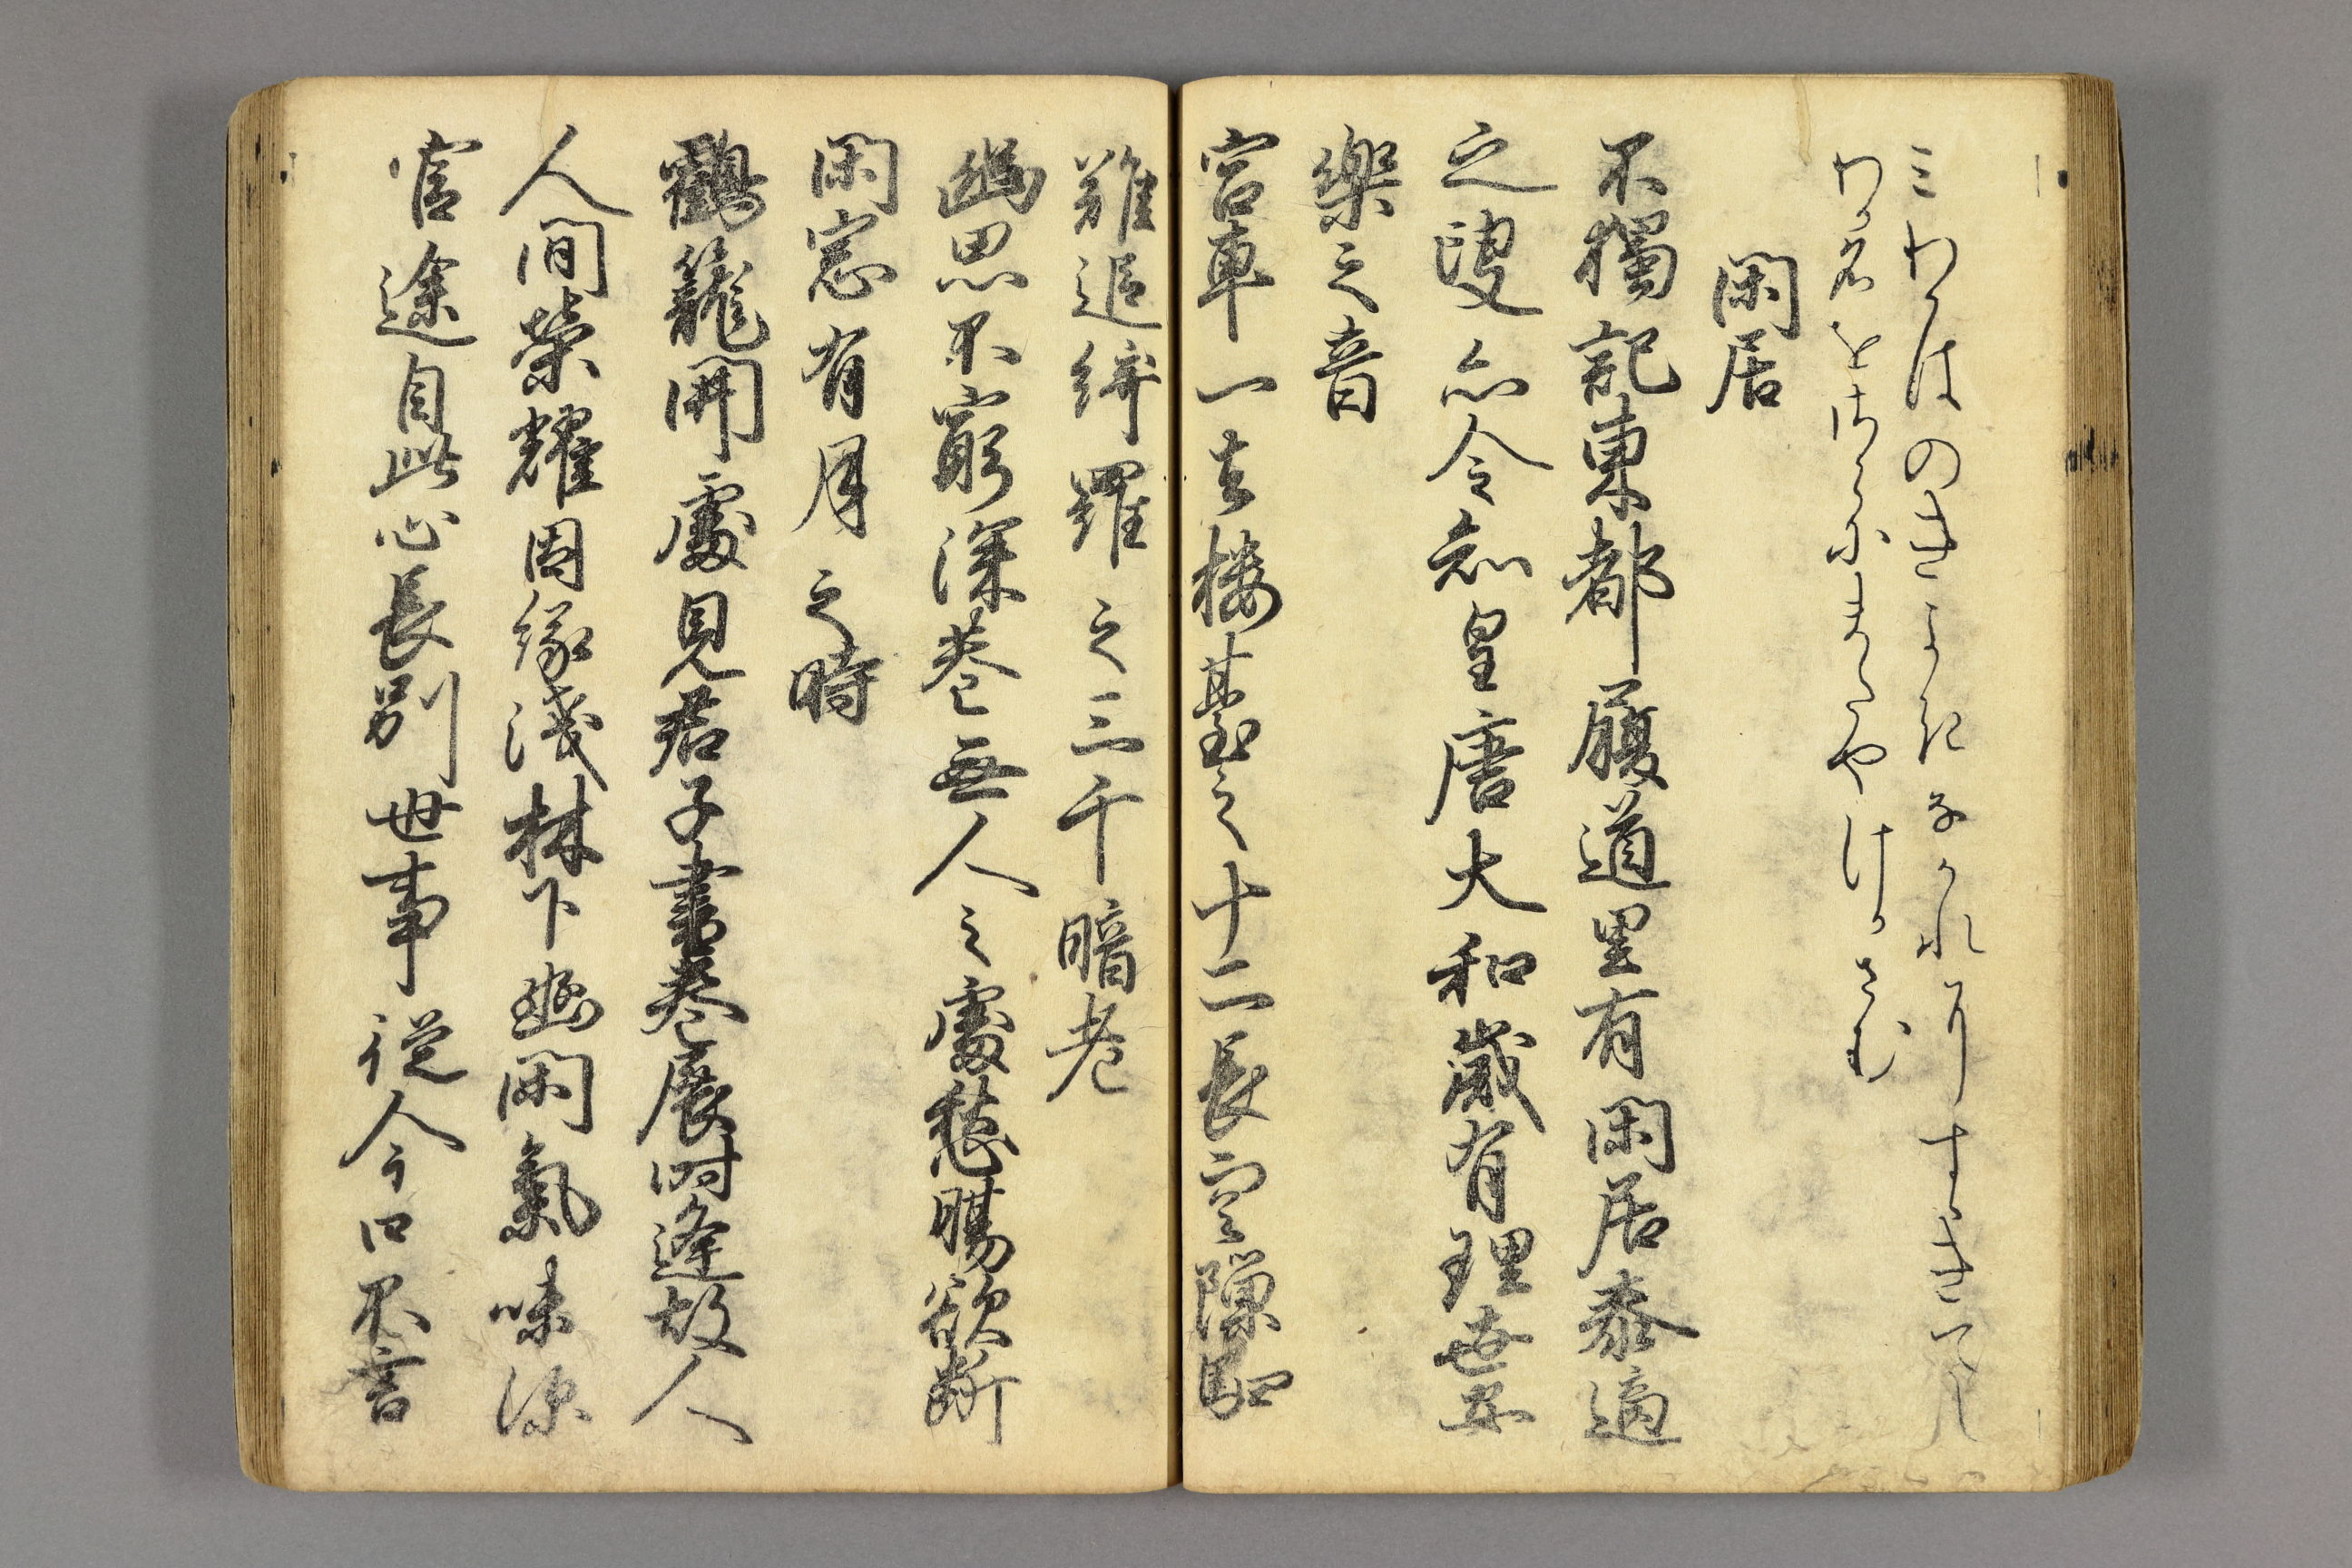 三わかはのきよきなかれにすゝきてし
わか名をさらにまたやけかさむ
閑居
不獨記東都履道里有閑居泰適
之叟亦令知皇唐大和歳有理世安
樂之音
宮車一去樓臺之十二長空隙駟
難追綺羅之三千暗老
幽思不窮深巷無人之處愁腸欲断
閑窓有月之時
鶴籠開處見君子書巻展時逢故人
人間榮耀因縁淺林下幽閑氣味深
官途自此心長別世事従今口不言